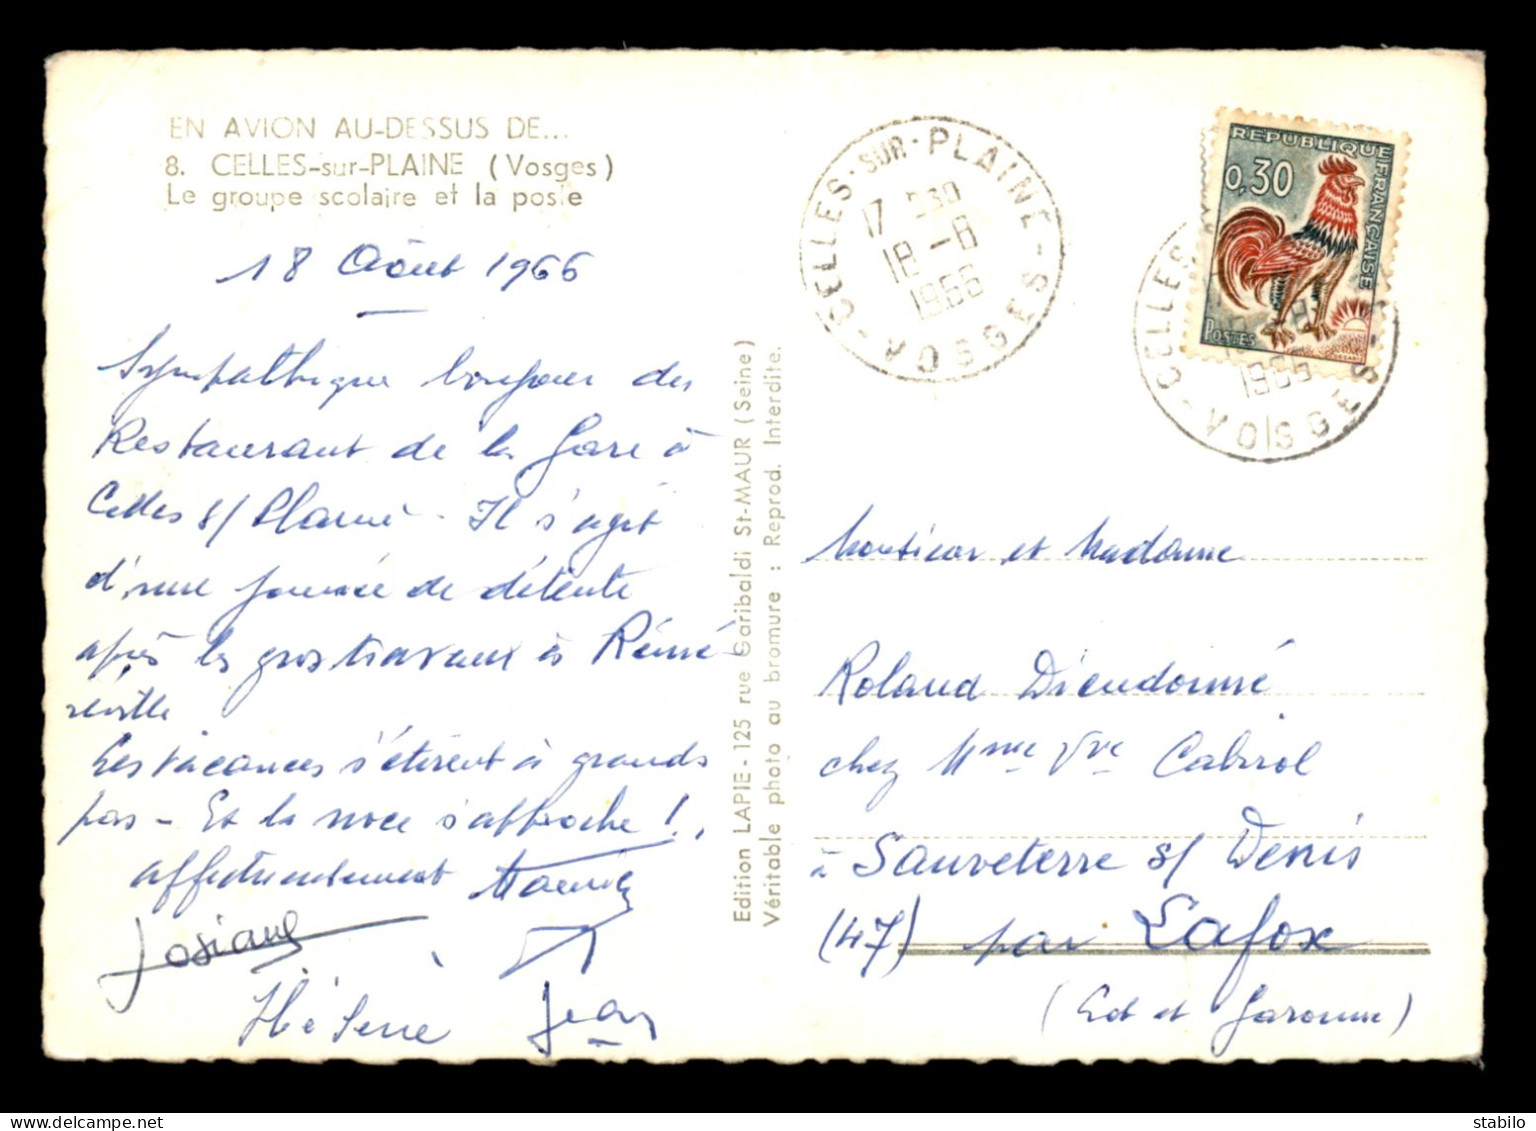 EN AVION AU-DESSUS DE...
8. CELLES-sur-PLAINE (Vosges)
Le groupe scolaire et la poste
18 Août 1966
Sympathique bonjour du
Restaurant de la Gare à
Celles s/ Plaine - Il s'agit
d'une journée de détente
après les gros travaux à Réméré-
ville
Les vacances s'étirent à grands
pas - Et la noce s'approche !
affectueusement
Josiane
Hélène Jean
Edition LAPIE - 125 rue Garibaldi St-MAUR (Seine)
Véritable photo au bromure : Reprod. Interdite.
CELLES-SUR-PLAINE
17 H30
18 - 8
1966
VOSGES
REPUBLIQUE FRANÇAISE
0,30
POSTES
CELLES
1966
VOSGES
Monsieur et Madame
Roland Dieudonné
chez Mme Vve Cabirol
à Sauveterre s/ Denis
(47) par Lafox
(Lot et Garonne)
stabilo